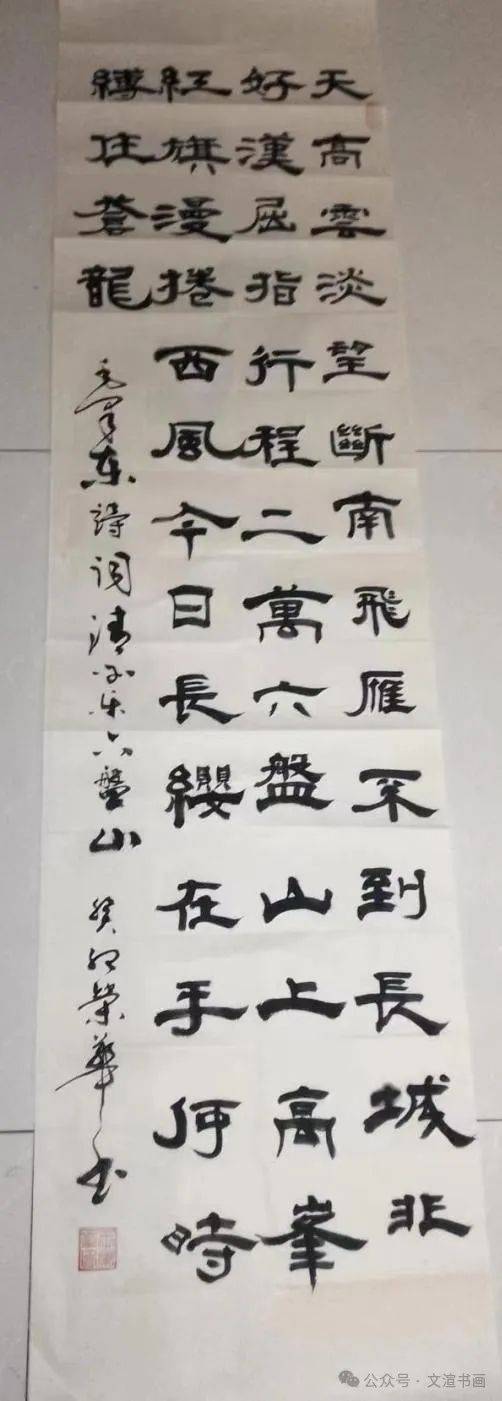 天高雲淡望斷南飛雁不到長城非
好漢屈指行程二萬六盤山上高峯
紅旗漫捲西風今日長纓在手何時
縛住蒼龍
毛澤東詩词清平乐六盤山 癸卯榮華书
公众号·文渲书画